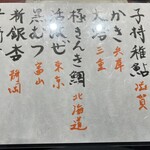 子持稚鮎 滋賀
かき 兵庫
大蛤 三重
極きんき鯛 北海道
活はぜ 東京
黒むつ 富山
新銀杏 静岡